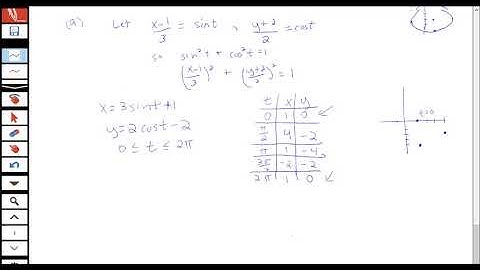 (a) Let x-1/3 = sint , y+2/2 = cost
so sin²t + cos²t = 1
(x-1/3)² + (y+2/2)² = 1
x = 3sint + 1
y = 2cost - 2
0 ≤ t ≤ 2π
t x y
0 1 0
π/2 4 -2
π 1 -4
3π/2 -2 -2
2π 1 0